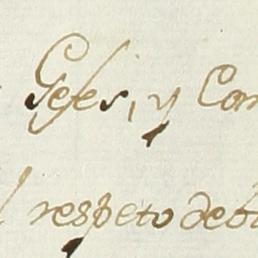 Gefes, y Con
l respeto debi